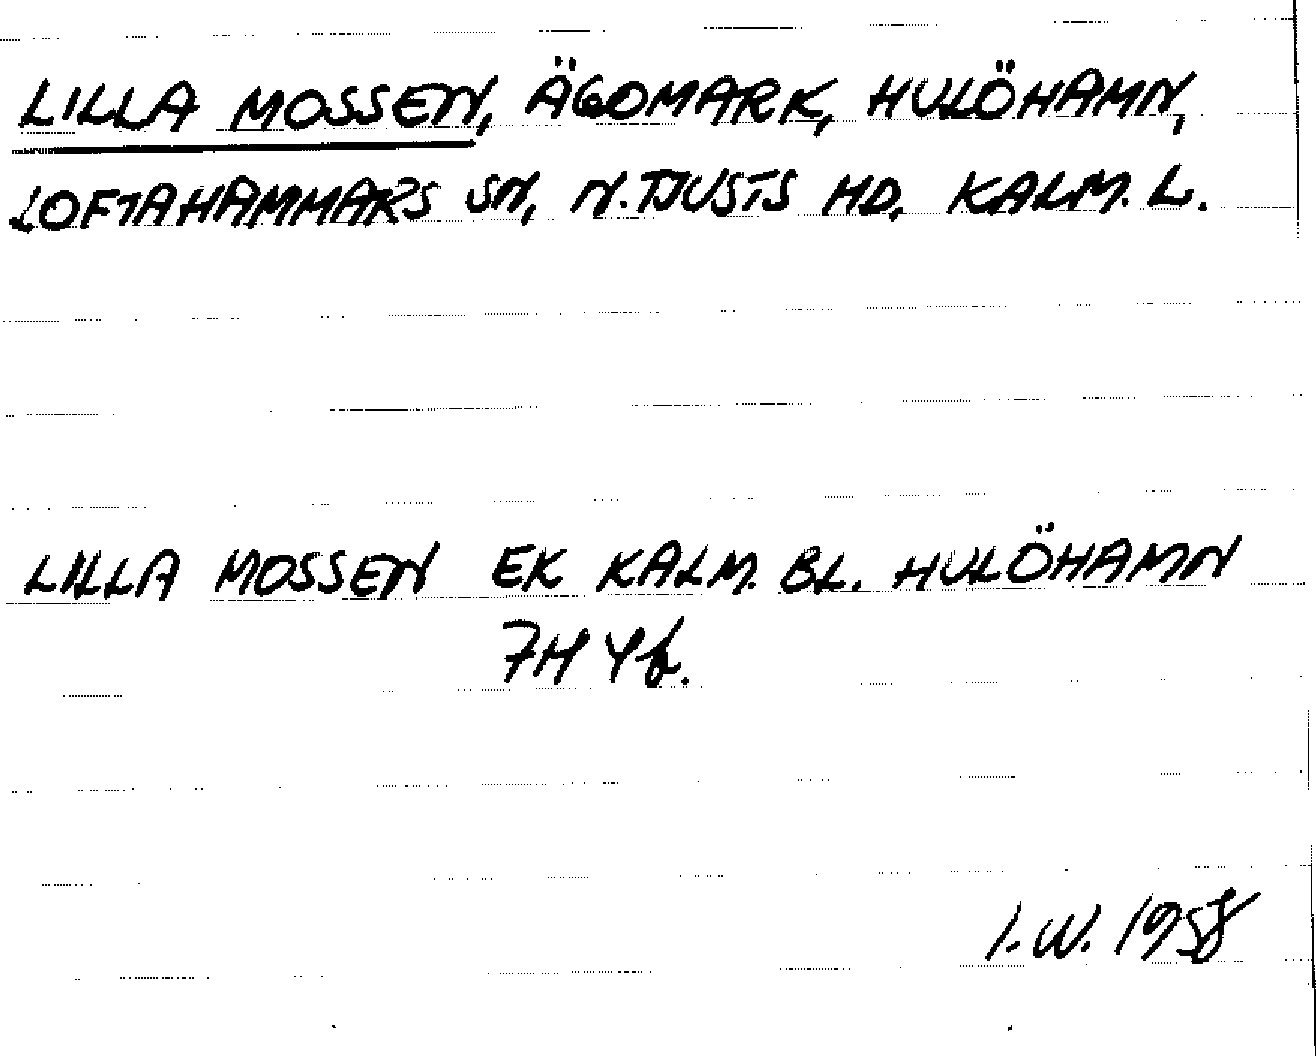 LILLA MOSSEN, ÄGOMARK, HULÖHAMN,
LOFTAHAMMARS SN, N. TJUSTS HD, KALM. L.
LILLA MOSSEN EK KALM. BL. HULÖHAMN
7H 4f.
I.W. 1958